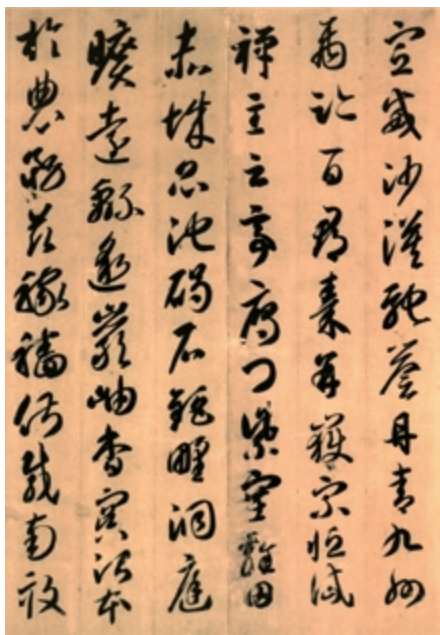 宣威沙漠馳譽丹青九州
禹跡百郡秦并嶽宗恒岱
禪主云亭雁門紫塞雞田
赤城昆池碣石鉅野洞庭
曠遠緜邈巖岫杳冥治本
於農務茲稼穡俶載南畝